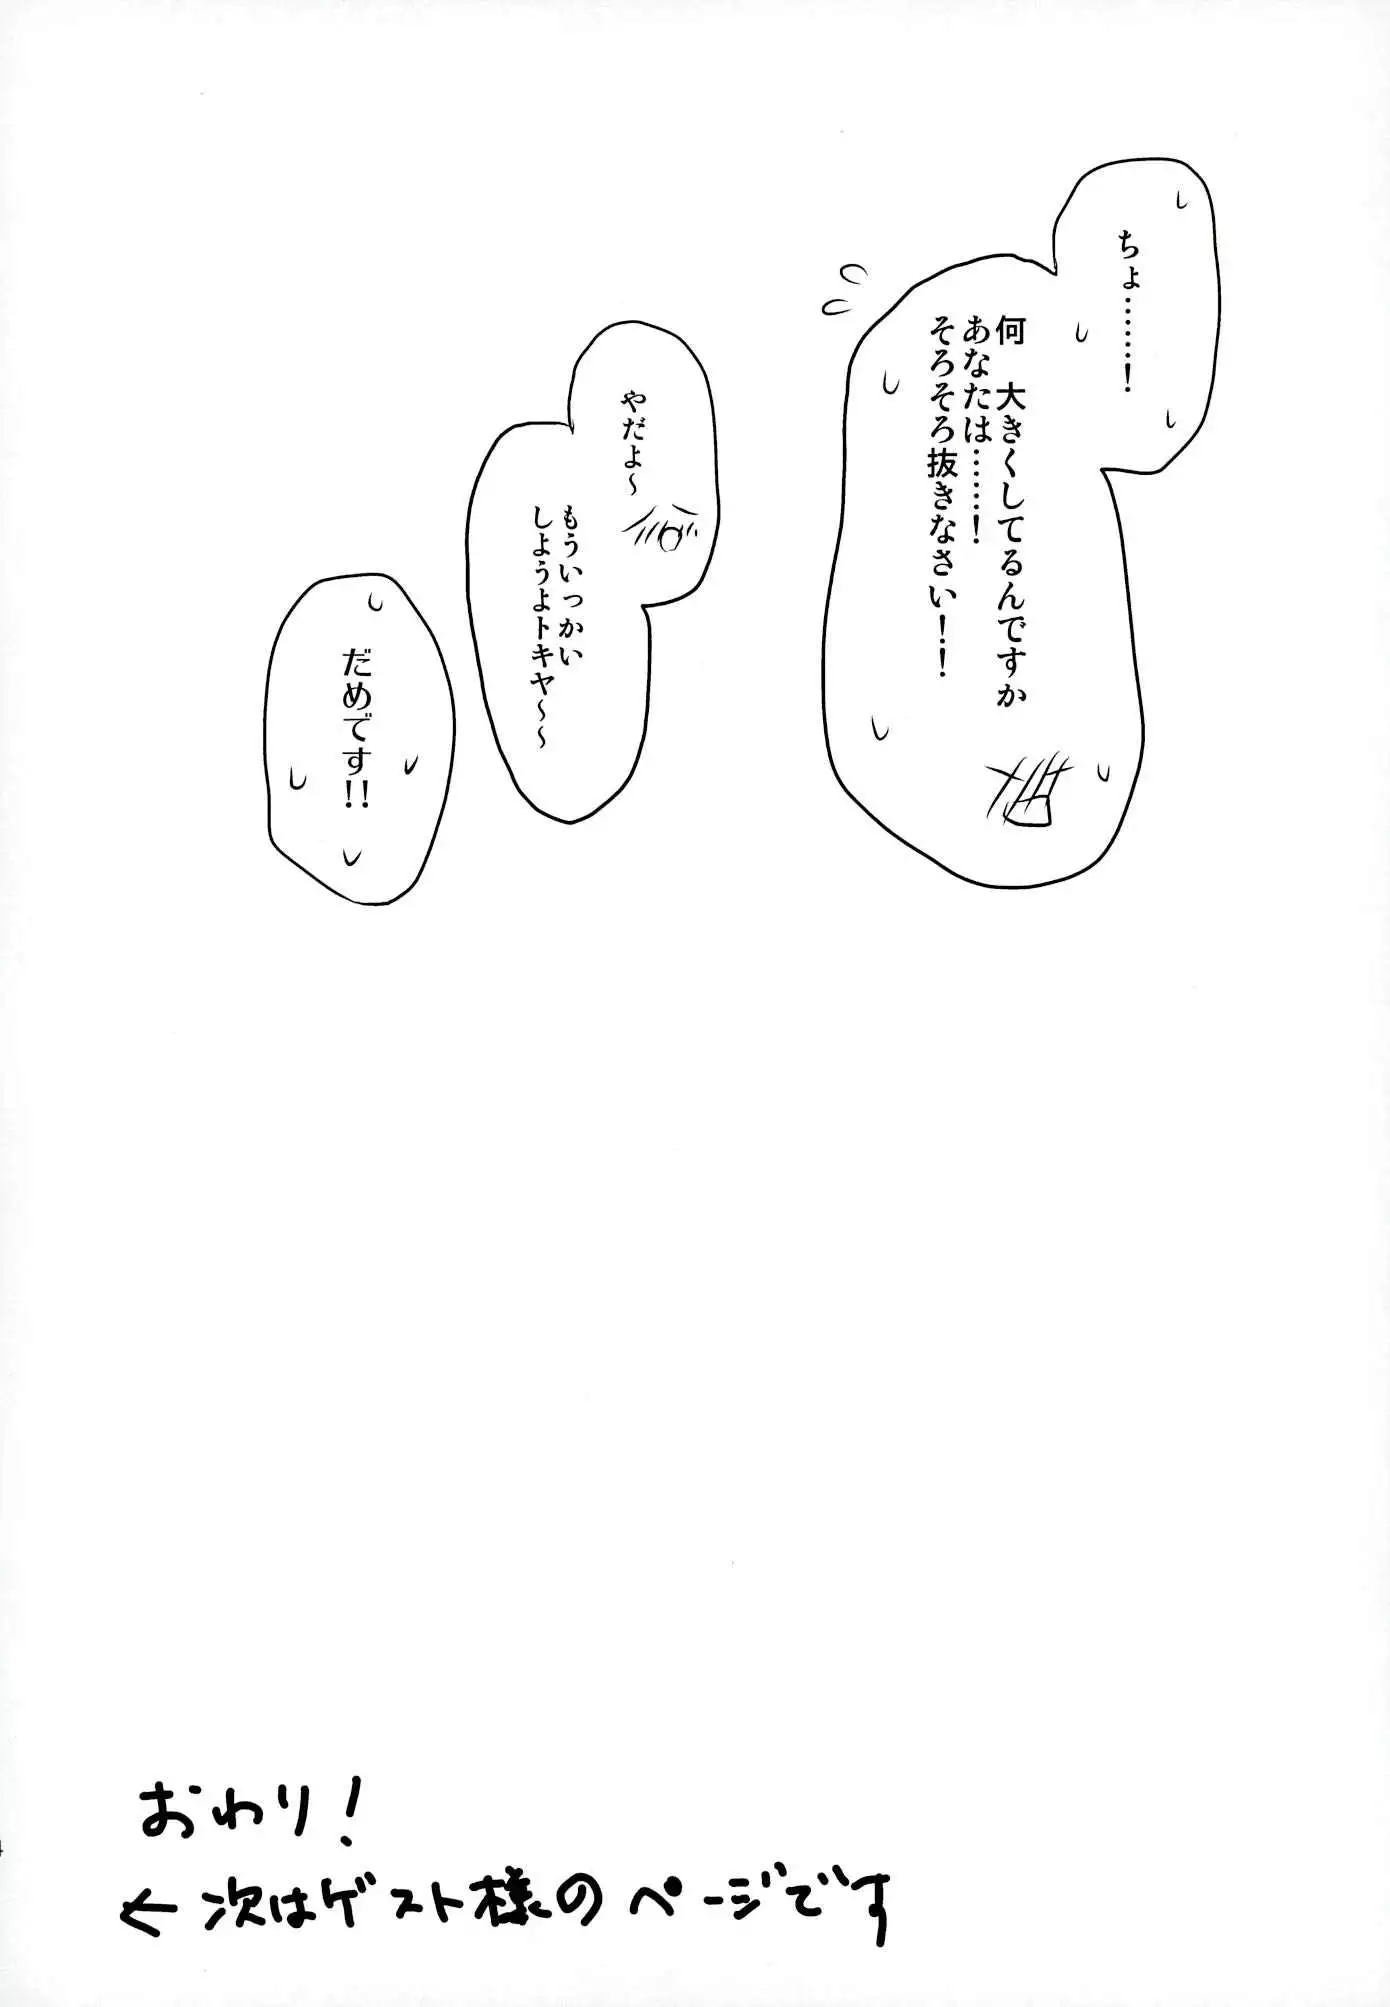 ちょ……！
何　大きくしてるんですか
あなたは……！
そろそろ抜きなさい！！
やだよ～
もういっかい
しようよトキヤ～～
だめです!!
おわり！
← 次はゲスト様のページです